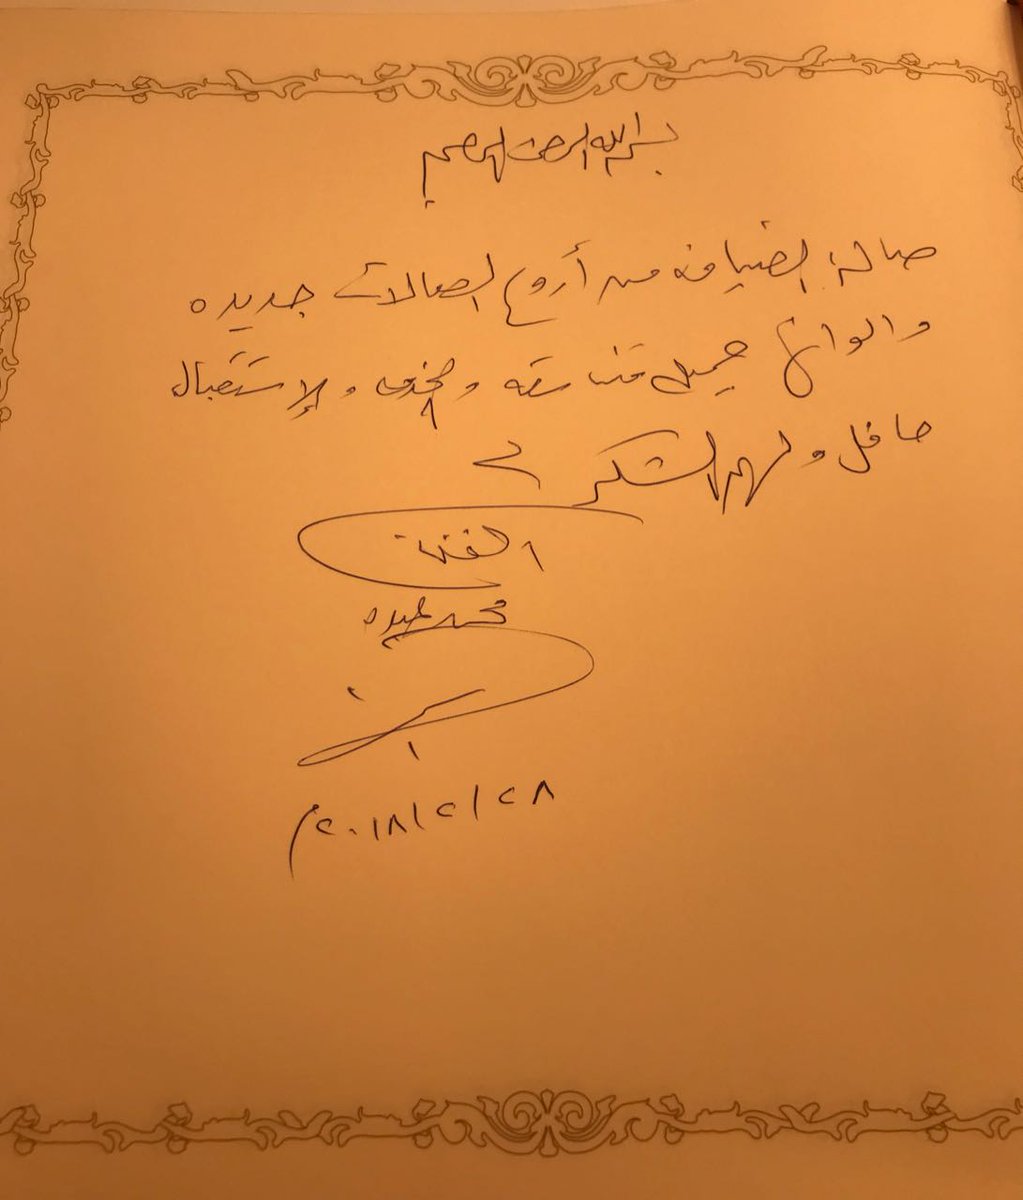 بسم الله الرحمن الرحيم
صالة الضيافه من أروع الصالات جديده
والوانها جميله متناسقه والخدمه والإستقبال
حافل ولهم الشكر
الفنان
محمد عبده
٢٨/٢/٢٠١٨م